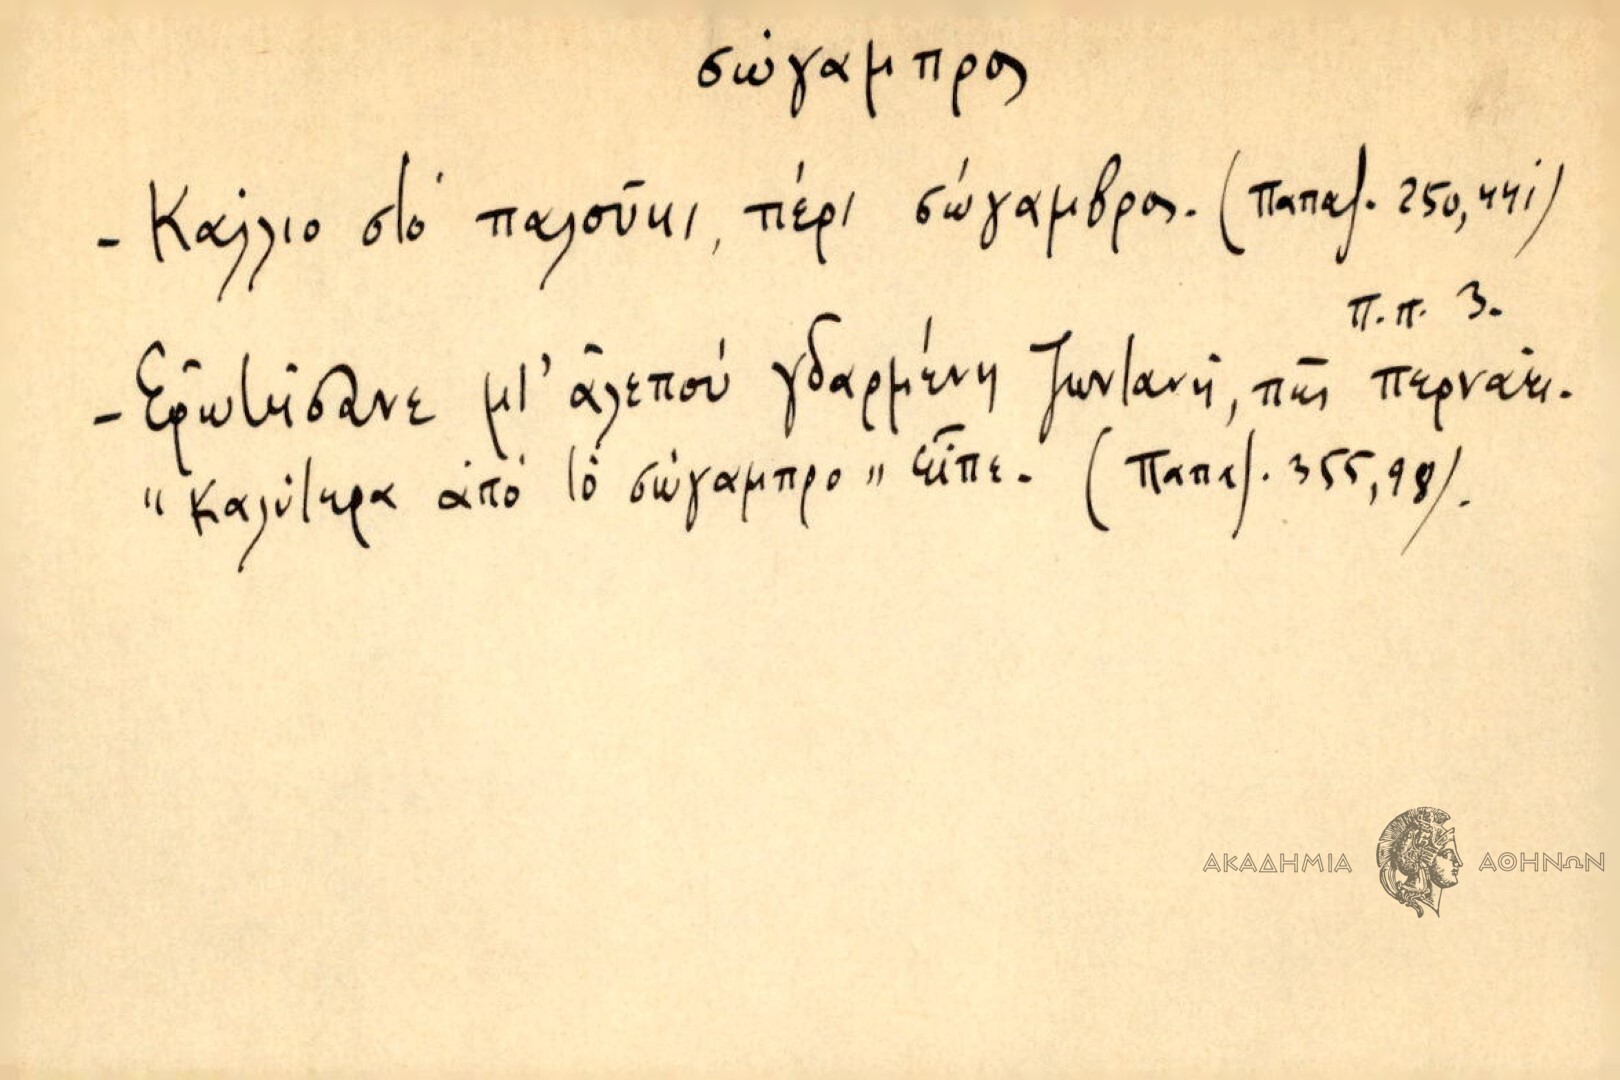 σώγαμπρος
- Κάλλιο στό παλοῦκι, πέρι σώγαμβρος. (Παπαζ. 250,441)
π.π. 3.
- Ἐρωτήσανε μι' ἀλεποῦ γδαρμένη ζωντανή, πῶς περνάει.
"Καλύτερα ἀπό τό σώγαμπρο" εἶπε. (Παπαζ. 355,98).
ΑΚΑΔΗΜΙΑ ΑΘΗΝΩΝ